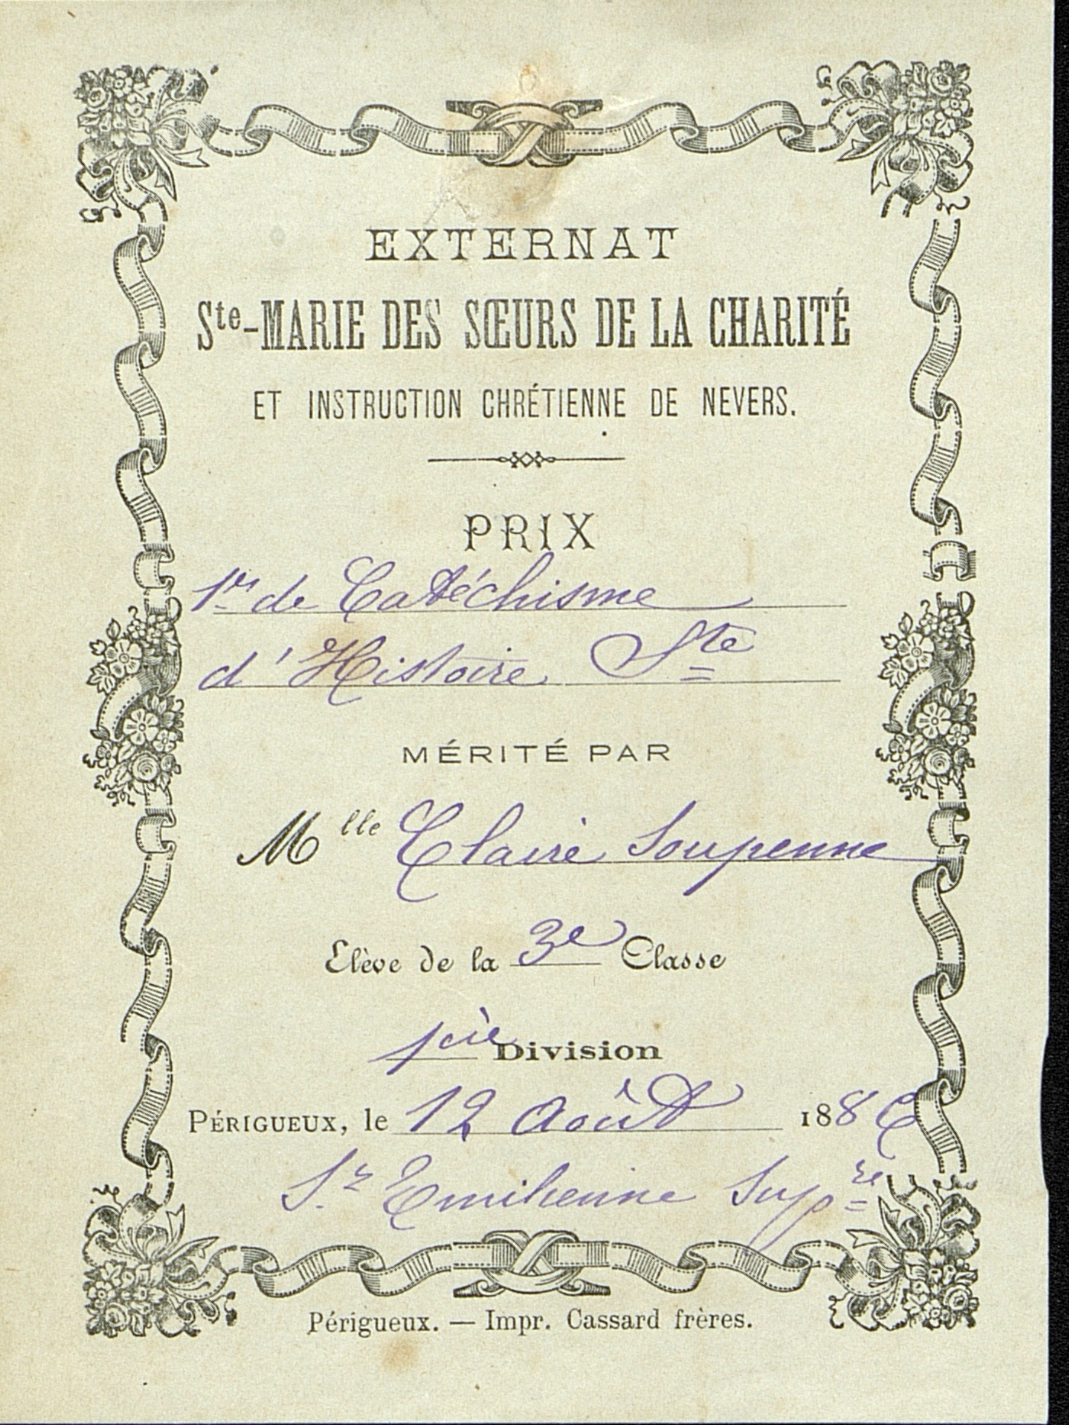 EXTERNAT
Ste-MARIE DES SŒURS DE LA CHARITÉ
ET INSTRUCTION CHRÉTIENNE DE NEVERS.
PRIX
1er de Catéchisme
d'Histoire Ste
MÉRITÉ PAR
Mlle Claire Soupenne
Elève de la 3e Classe
1ère Division
PÉRIGUEUX, le 12 Août 1886
Sr Emilienne Supre
Périgueux. — Impr. Cassard frères.